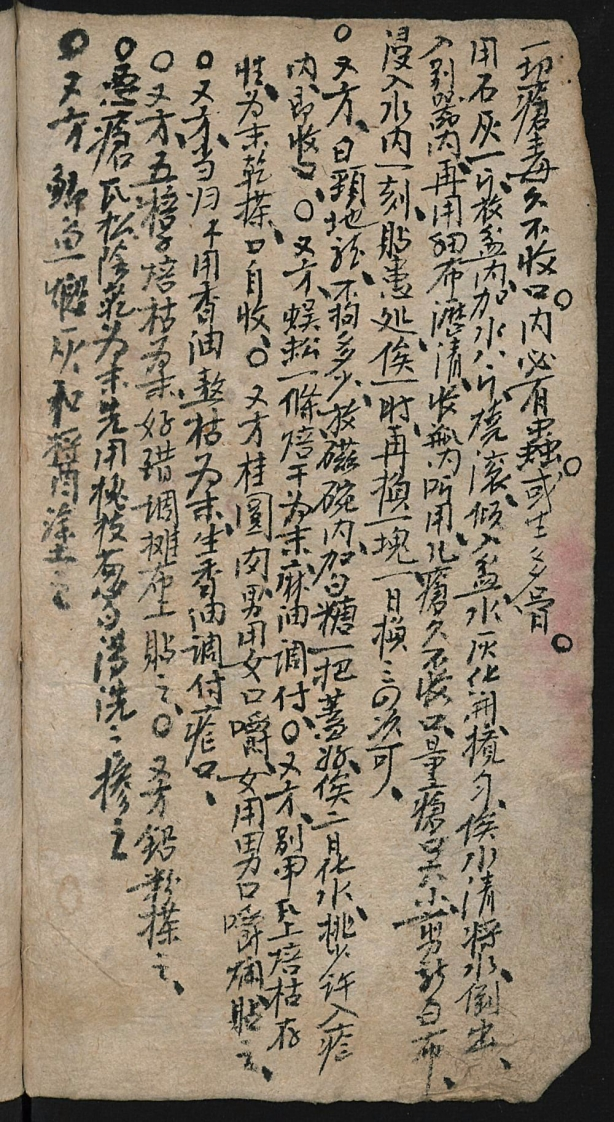 一切瘡毒久不收口○內必有虫○或生多骨○
用石灰一斤放盆內加水八斤燒滾傾入盆水灰化開攪勻俟水清將水倒出、
入別器內再用細布瀝清收瓶內听用凡瘡久不收口量瘡口大小剪新白布、
浸入水內一刻貼患処俟一时再換一塊一日換三四次可、
○又方白頸地龍不拘多少放磁碗內加白糖一把蓋好俟二日化水挑少許入瘡
內即收口○又方蜈蚣一條焙干為末麻油調付○又方別甲瓦上焙枯存
性為末乾搽口自收○又方桂圓肉男用女口嚼女用男口嚼爛貼之、
○又方当归不用香油熬枯為末生香油調付瘡口、
○又方五倍子焙枯為末好醋調攤布上貼之○又方鉛粉搽之、
○惡瘡瓦松陰乾為末先用槐枝葱白湯洗之摻之
○又方鯽魚一個灰和將肉塗之